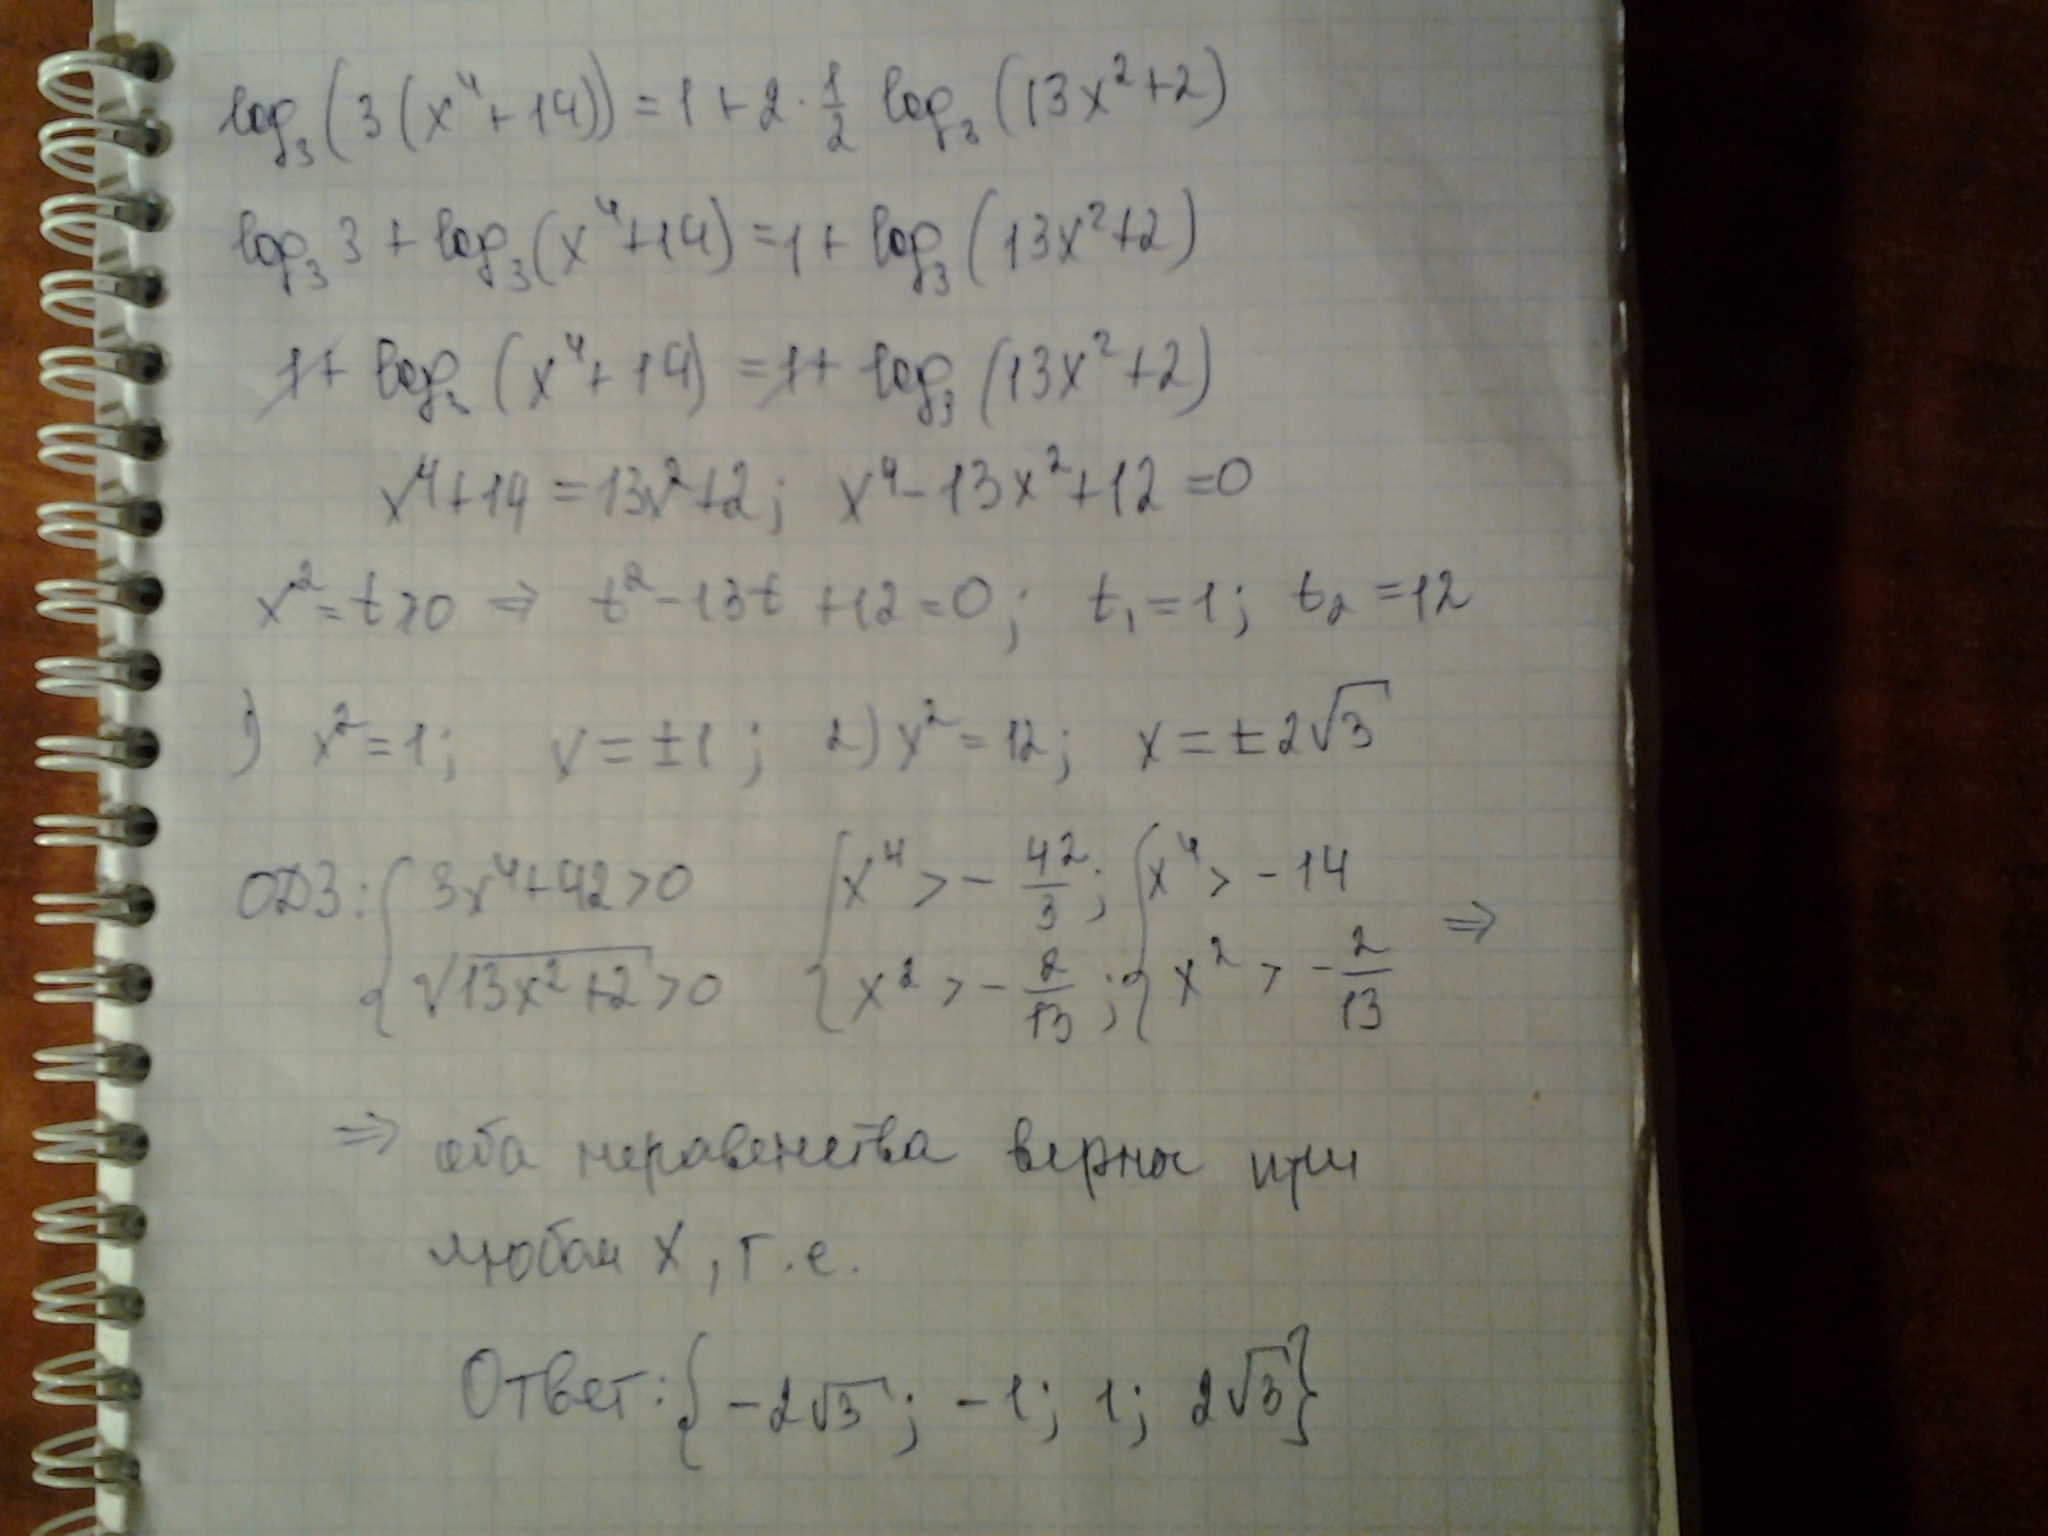 log₃(3(x⁴+14))=1+2·1/2 log₃(13x²+2)
log₃3+log₃(x⁴+14)=1+log₃(13x²+2)
1+log₃(x⁴+14)=1+log₃(13x²+2)
x⁴+14=13x²+2; x⁴-13x²+12=0
x²=t>0 ⇒ t²-13t+12=0; t₁=1; t₂=12
1) x²=1; x=±1; 2) x²=12; x=±2√3
ОДЗ: { 3x⁴+42>0 { x⁴>-42/3; { x⁴>-14
√(13x²+2)>0 x²>-2/13; x²>-2/13 ⇒
⇒ оба неравенства верны при
любом x, т.е.
Ответ: {-2√3; -1; 1; 2√3}